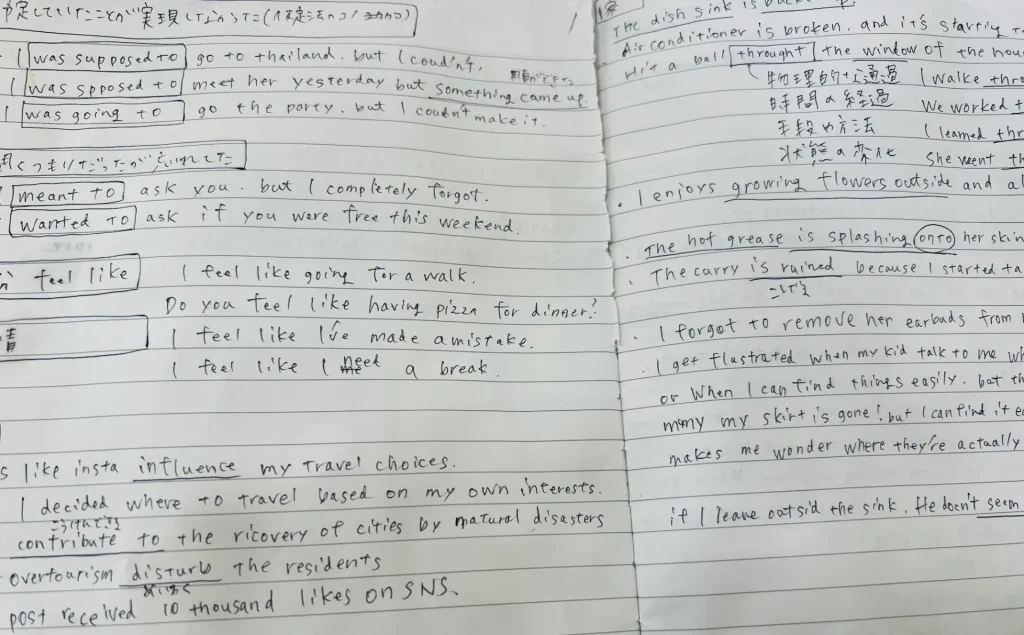 予定していたことが実現しなかった
I was supposed to go to thailand. but I coudn't.
I was spposed to meet her yesterday but something came up.
I was going to go the party. but I couldn't make it.
聞くつもりだったが忘れてた
meant to ask you. but I completely forgot.
wanted to ask if you were free this weekend.
feel like I feel like going for a walk.
Do you feel like having pizza for dinner?
I feel like I've made a mistake.
I feel like I need a break.
like insta influence my travel choices.
I decided where to travel based on my own interests.
こうけんする
contribute to the ricovery of cities by natural disasters
overtourism disturb the residents
post received 10 thousand likes on SNS.
The dish sink is
Air conditioner is broken. and it's starting
Hit a ball throught the window of the
物理的な通過 I walke
時間の経過 We worked
手段や方法 I learned
状態の変化 She went
・I enjoys growing flowers outside and
・The hot grease is splashing onto her skin
・The curry is ruined because I started
・I forgot to remove her earbuds from
・I get flastrated when my kid talk to me
or When I can find things easily. but
my skirt is gone! but I can find it
makes me wonder where they're actually
if I leave outsid the sink. He doen't seem